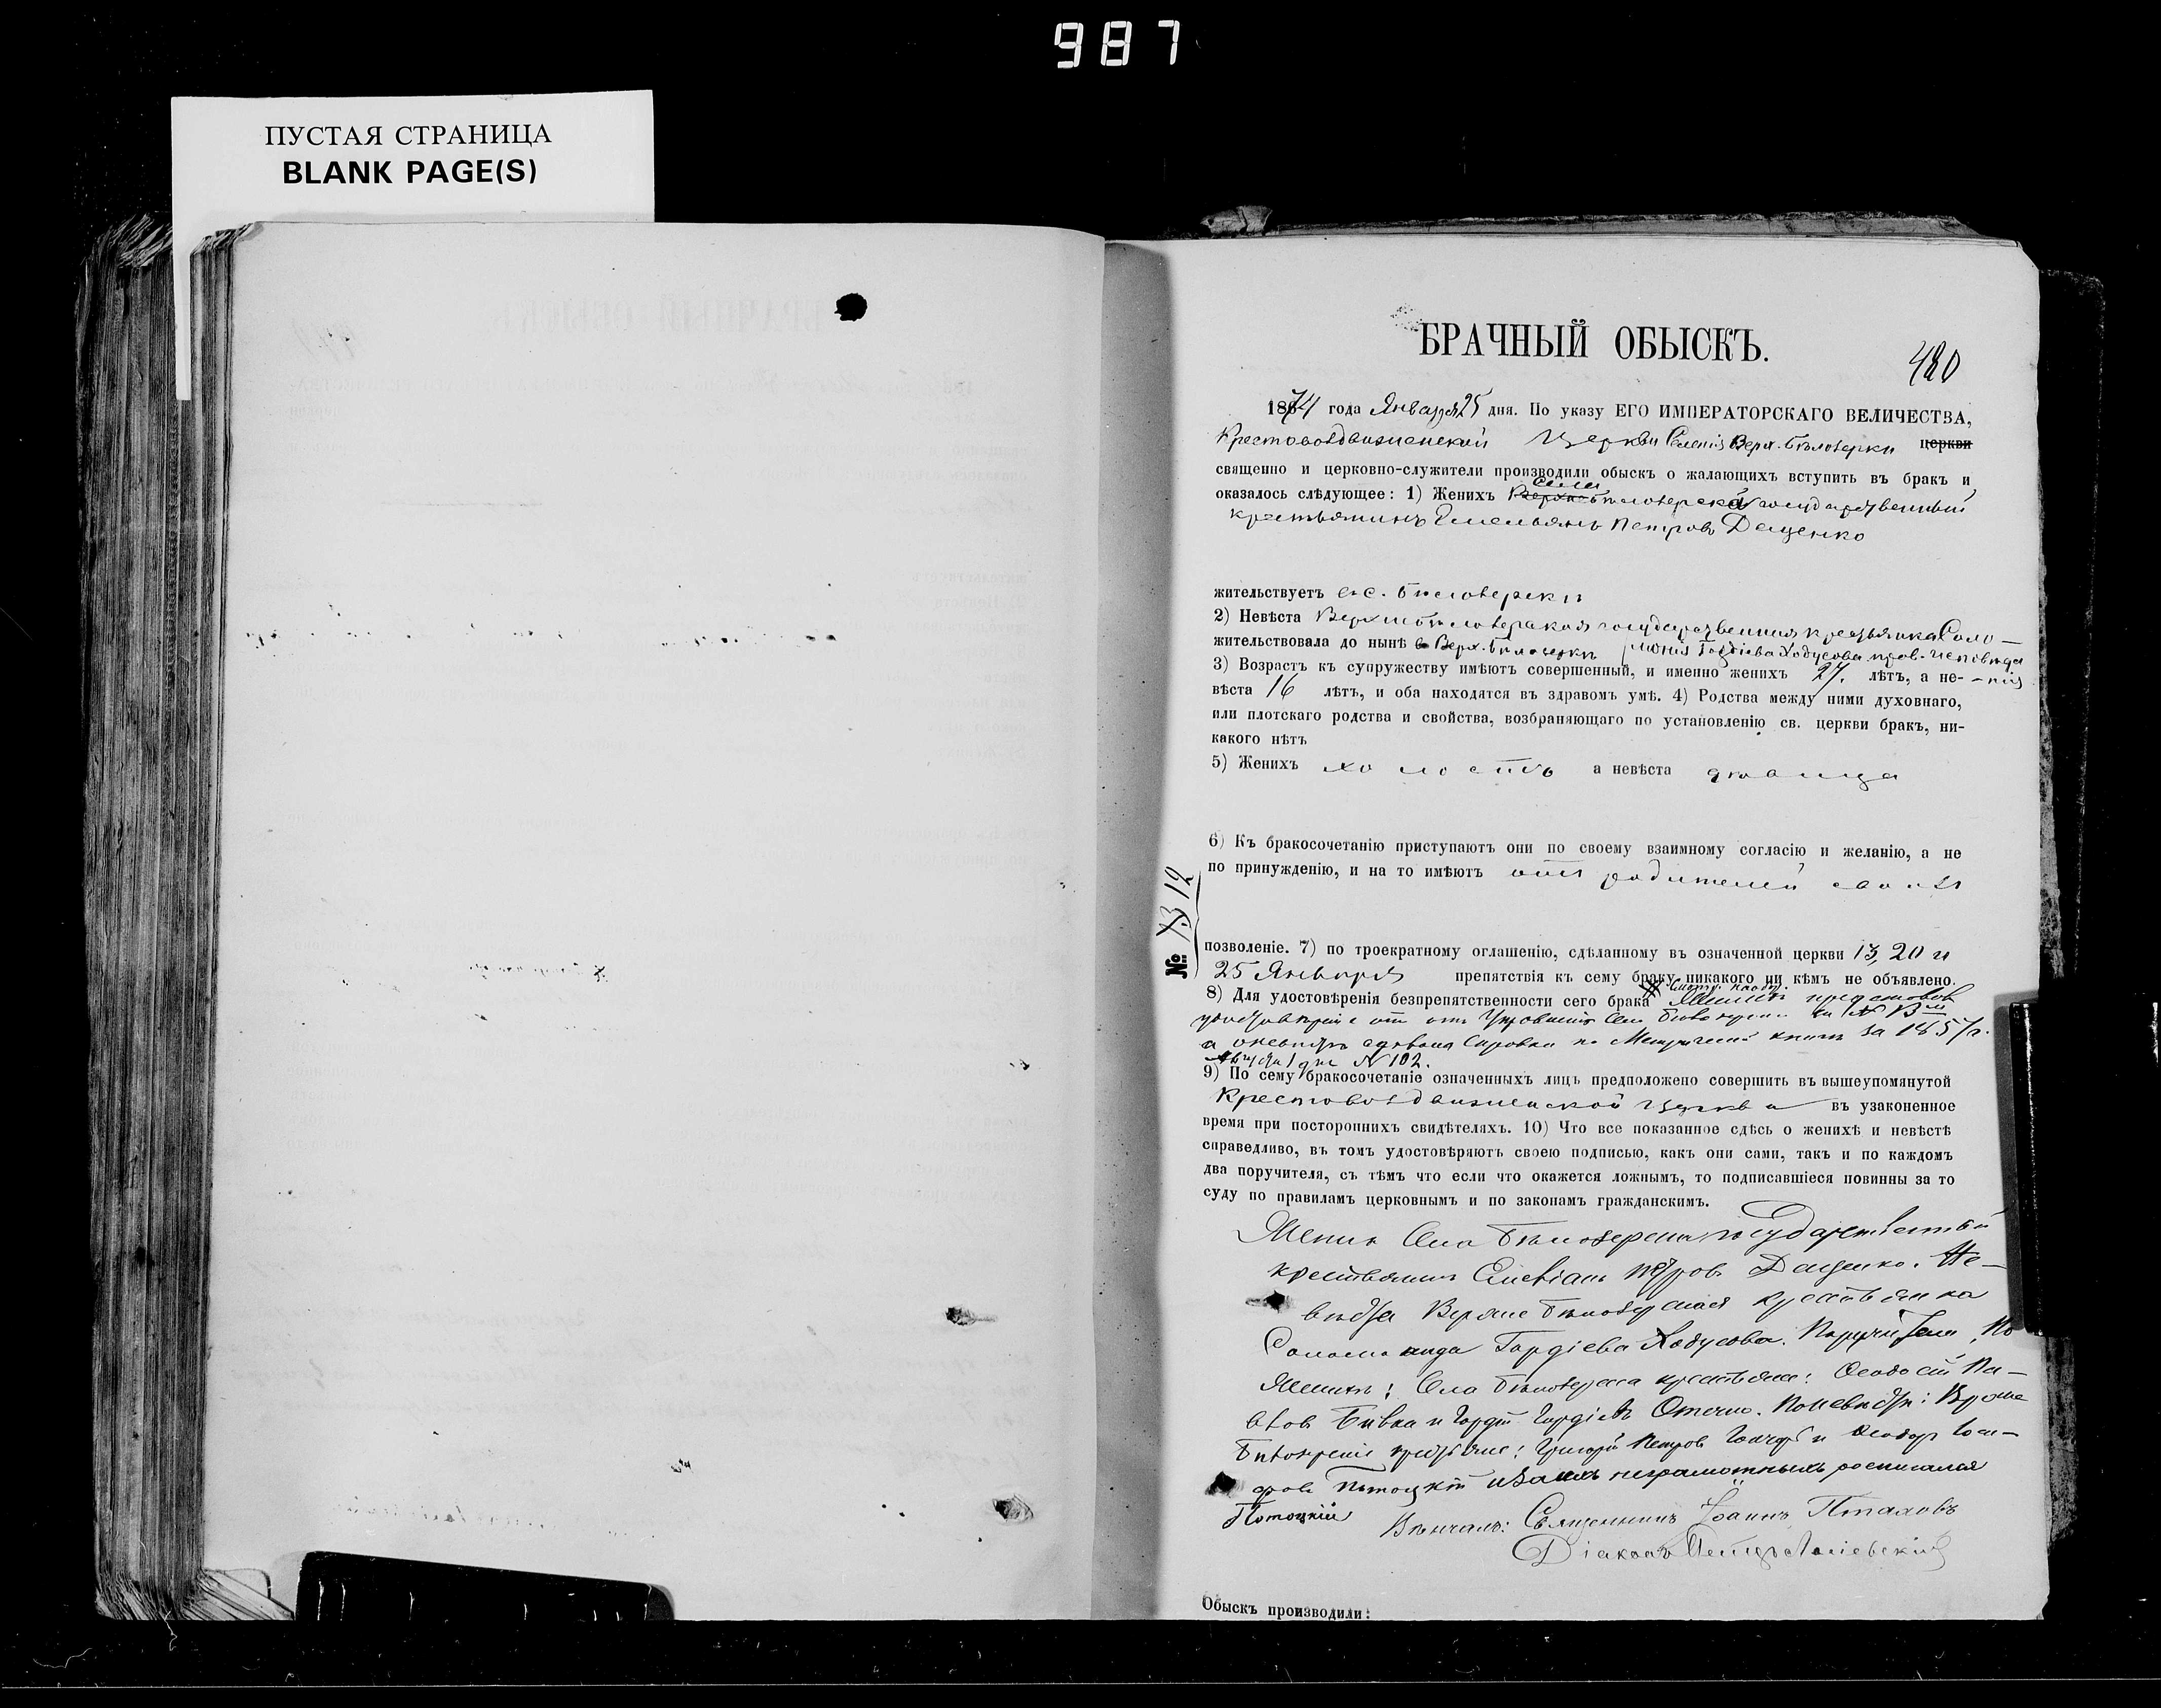 987
ПУСТАЯ СТРАНИЦА
BLANK PAGE(S)
БРАЧНЫЙ ОБЫСКЪ.
480
1874 года Января 25 дня. По указу ЕГО ИМПЕРАТОРСКАГО ВЕЛИЧЕСТВА,
Крестовоздвиженской Церкви Селенія Верх. Бѣлозерки церкви
священно и церковно-служители производили обыскъ о жалающихъ вступить въ бракъ и
оказалось слѣдующее: 1) Женихъ села государственный
крестьянинъ Емельянъ Петровъ Деценко
жительствуетъ в с. Бѣлозерки
2) Невѣста Верхнебѣлозерская государственная крестьянка Соло-
жительствовала до нынѣ в Верх. Бѣлозерки монія Гордіева Ходусова прав. исповѣда
3) Возрастъ къ супружеству имѣютъ совершенный, и именно женихъ 27. лѣтъ, а не- -нія
вѣста 16 лѣтъ, и оба находятся въ здравомъ умѣ. 4) Родства между ними духовнаго,
или плотскаго родства и свойства, возбраняющаго по установленію св. церкви бракъ, ни-
какого нѣтъ
5) Женихъ холостъ а невѣста дѣвица
6) Къ бракосочетанію приступаютъ они по своему взаимному согласію и желанію, а не
по принужденію, и на то имѣютъ отъ родителей своихъ
№ 13 12
позволеніе. 7) по троекратному оглашенію, сдѣланному въ означенной церкви 13, 20 и
25 Января препятствія къ сему браку никакого ни кѣмъ не объявлено.
8) Для удостовѣренія безпрепятственности сего брака
а о невѣстѣ справка по Метрической книгѣ за 1857 г.
Августа 1 дня N 102.
9) По сему бракосочетаніе означенныхъ лицъ предположено совершить въ вышеупомянутой
Крестовоздвиженской церкви въ узаконенное
время при постороннихъ свидѣтеляхъ. 10) Что все показанное сдѣсь о женихѣ и невѣстѣ
справедливо, въ томъ удостовѣряютъ своею подписью, какъ они сами, такъ и по каждомъ
два поручителя, съ тѣмъ что если что окажется ложнымъ, то подписавшіеся повинны за то
суду по правиламъ церковнымъ и по законамъ гражданскимъ.
Женихъ Села Бѣлозерки государственный
крестьянинъ Петровъ Деценко. Не-
вѣста Верхне Бѣлозерская крестьянка
Гордіева Ходусова. Поручители, По
Женихѣ: Села Бѣлозерки крестьяне: Па-
По невѣстѣ:
крестьяне: Григорій Петровъ и Ѳеодоръ
Потоцкій и за ихъ неграмотныхъ росписался
Потоцкій Вѣнчалъ: Священникъ Іоаннъ Птаховъ
Діаконъ Петръ
Обыскъ производили: